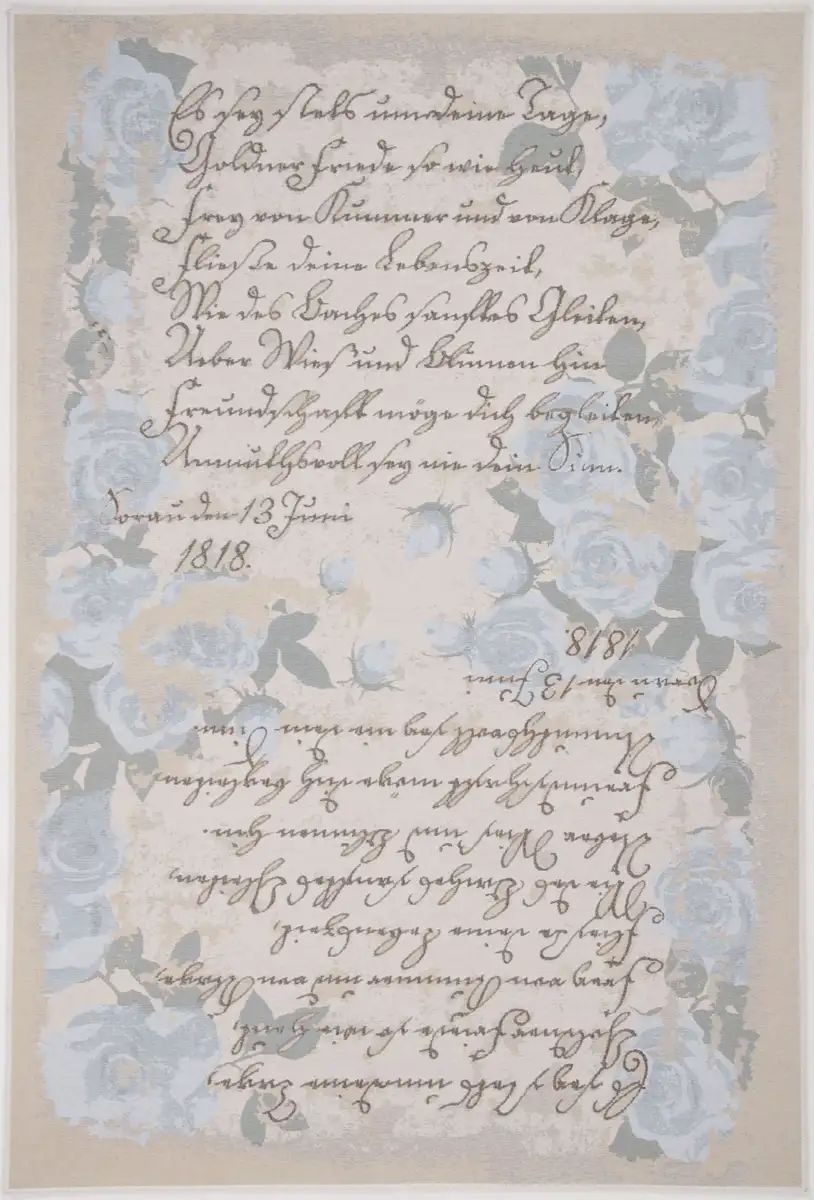 Es sey stets um deine Tage,
Goldner Friede so wie Heut,
Frey von Kummer und von Klage,
Fließe deine Lebenszeit,
Wie des Baches sanftes Gleiten,
Ueber Wies und Blumen hin
Freundschaft möge dich begleiten,
Unmuthsvoll sey nie dein Sinn.
Sorau den 13 Juni
1818.
Es sey stets um deine Tage,
Goldner Friede so wie Heut,
Frey von Kummer und von Klage,
Fließe deine Lebenszeit,
Wie des Baches sanftes Gleiten,
Ueber Wies und Blumen hin.
Freundschaft möge dich begleiten,
Unmuthsvoll sey nie dein Sinn.
Sorau den 13 Juni
1818.